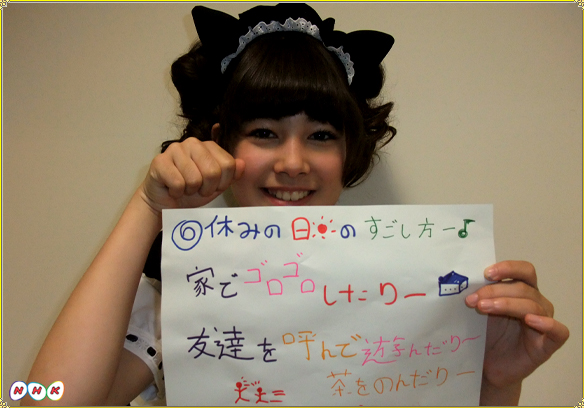 ◎休みの日のすごし方ー♪
家でゴロゴロしたりー
友達を呼んで遊んだりー
茶をのんだりー
NHK